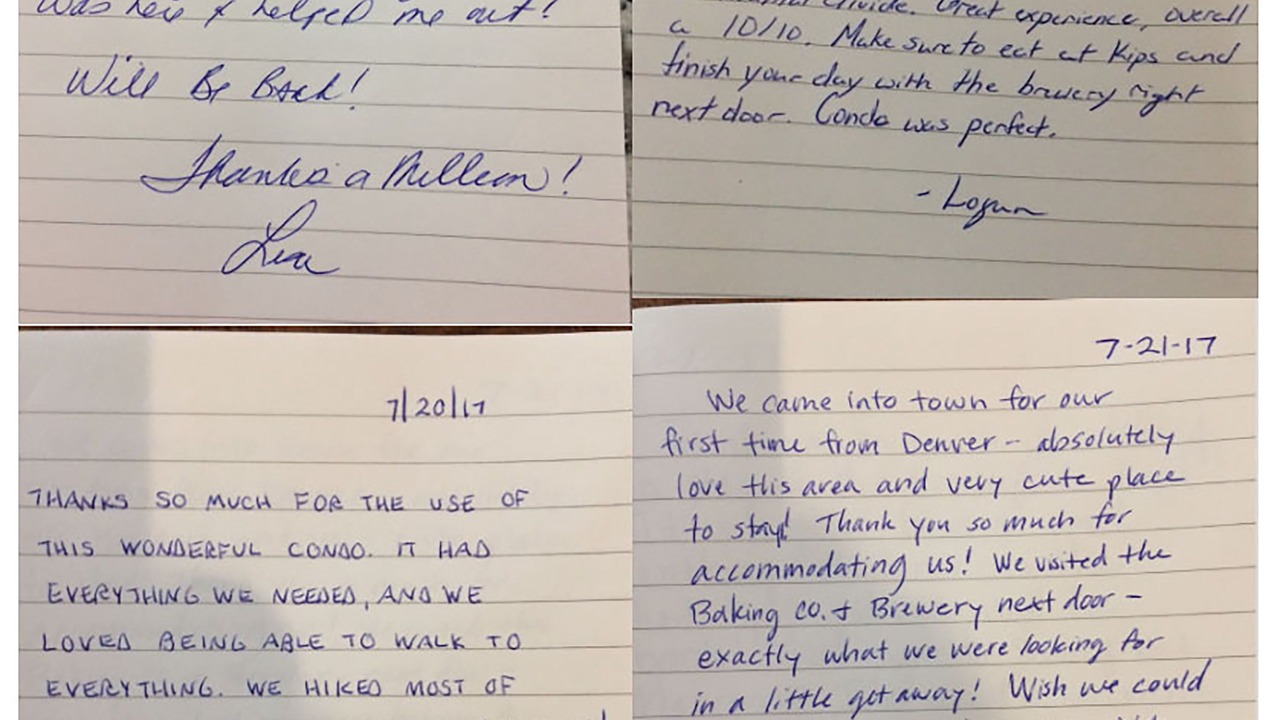 was here & helped me out!
Will Be Back!
Thanks a Million!
Lisa
Divide. Great experience, overall
a 10/10. Make sure to eat at Kips and
finish your day with the brewery right
next door. Condo was perfect.
- Logan
7/20/17
THANKS SO MUCH FOR THE USE OF
THIS WONDERFUL CONDO. IT HAD
EVERYTHING WE NEEDED, AND WE
LOVED BEING ABLE TO WALK TO
EVERYTHING. WE HIKED MOST OF
7-21-17
We came into town for our
first time from Denver -- absolutely
love this area and very cute place
to stay! Thank you so much for
accommodating us! We visited the
Baking co. & Brewery next door -
exactly what we were looking for
in a little getaway! Wish we could